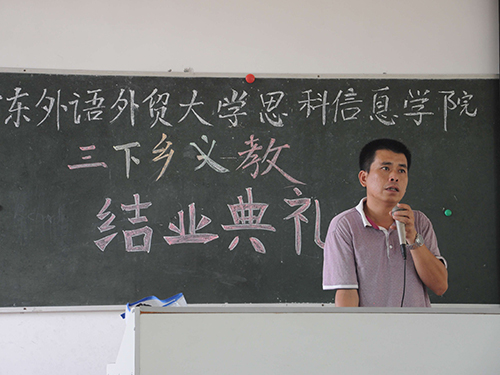 东外语外贸大学思科信息学院
三下乡义教
结业典礼